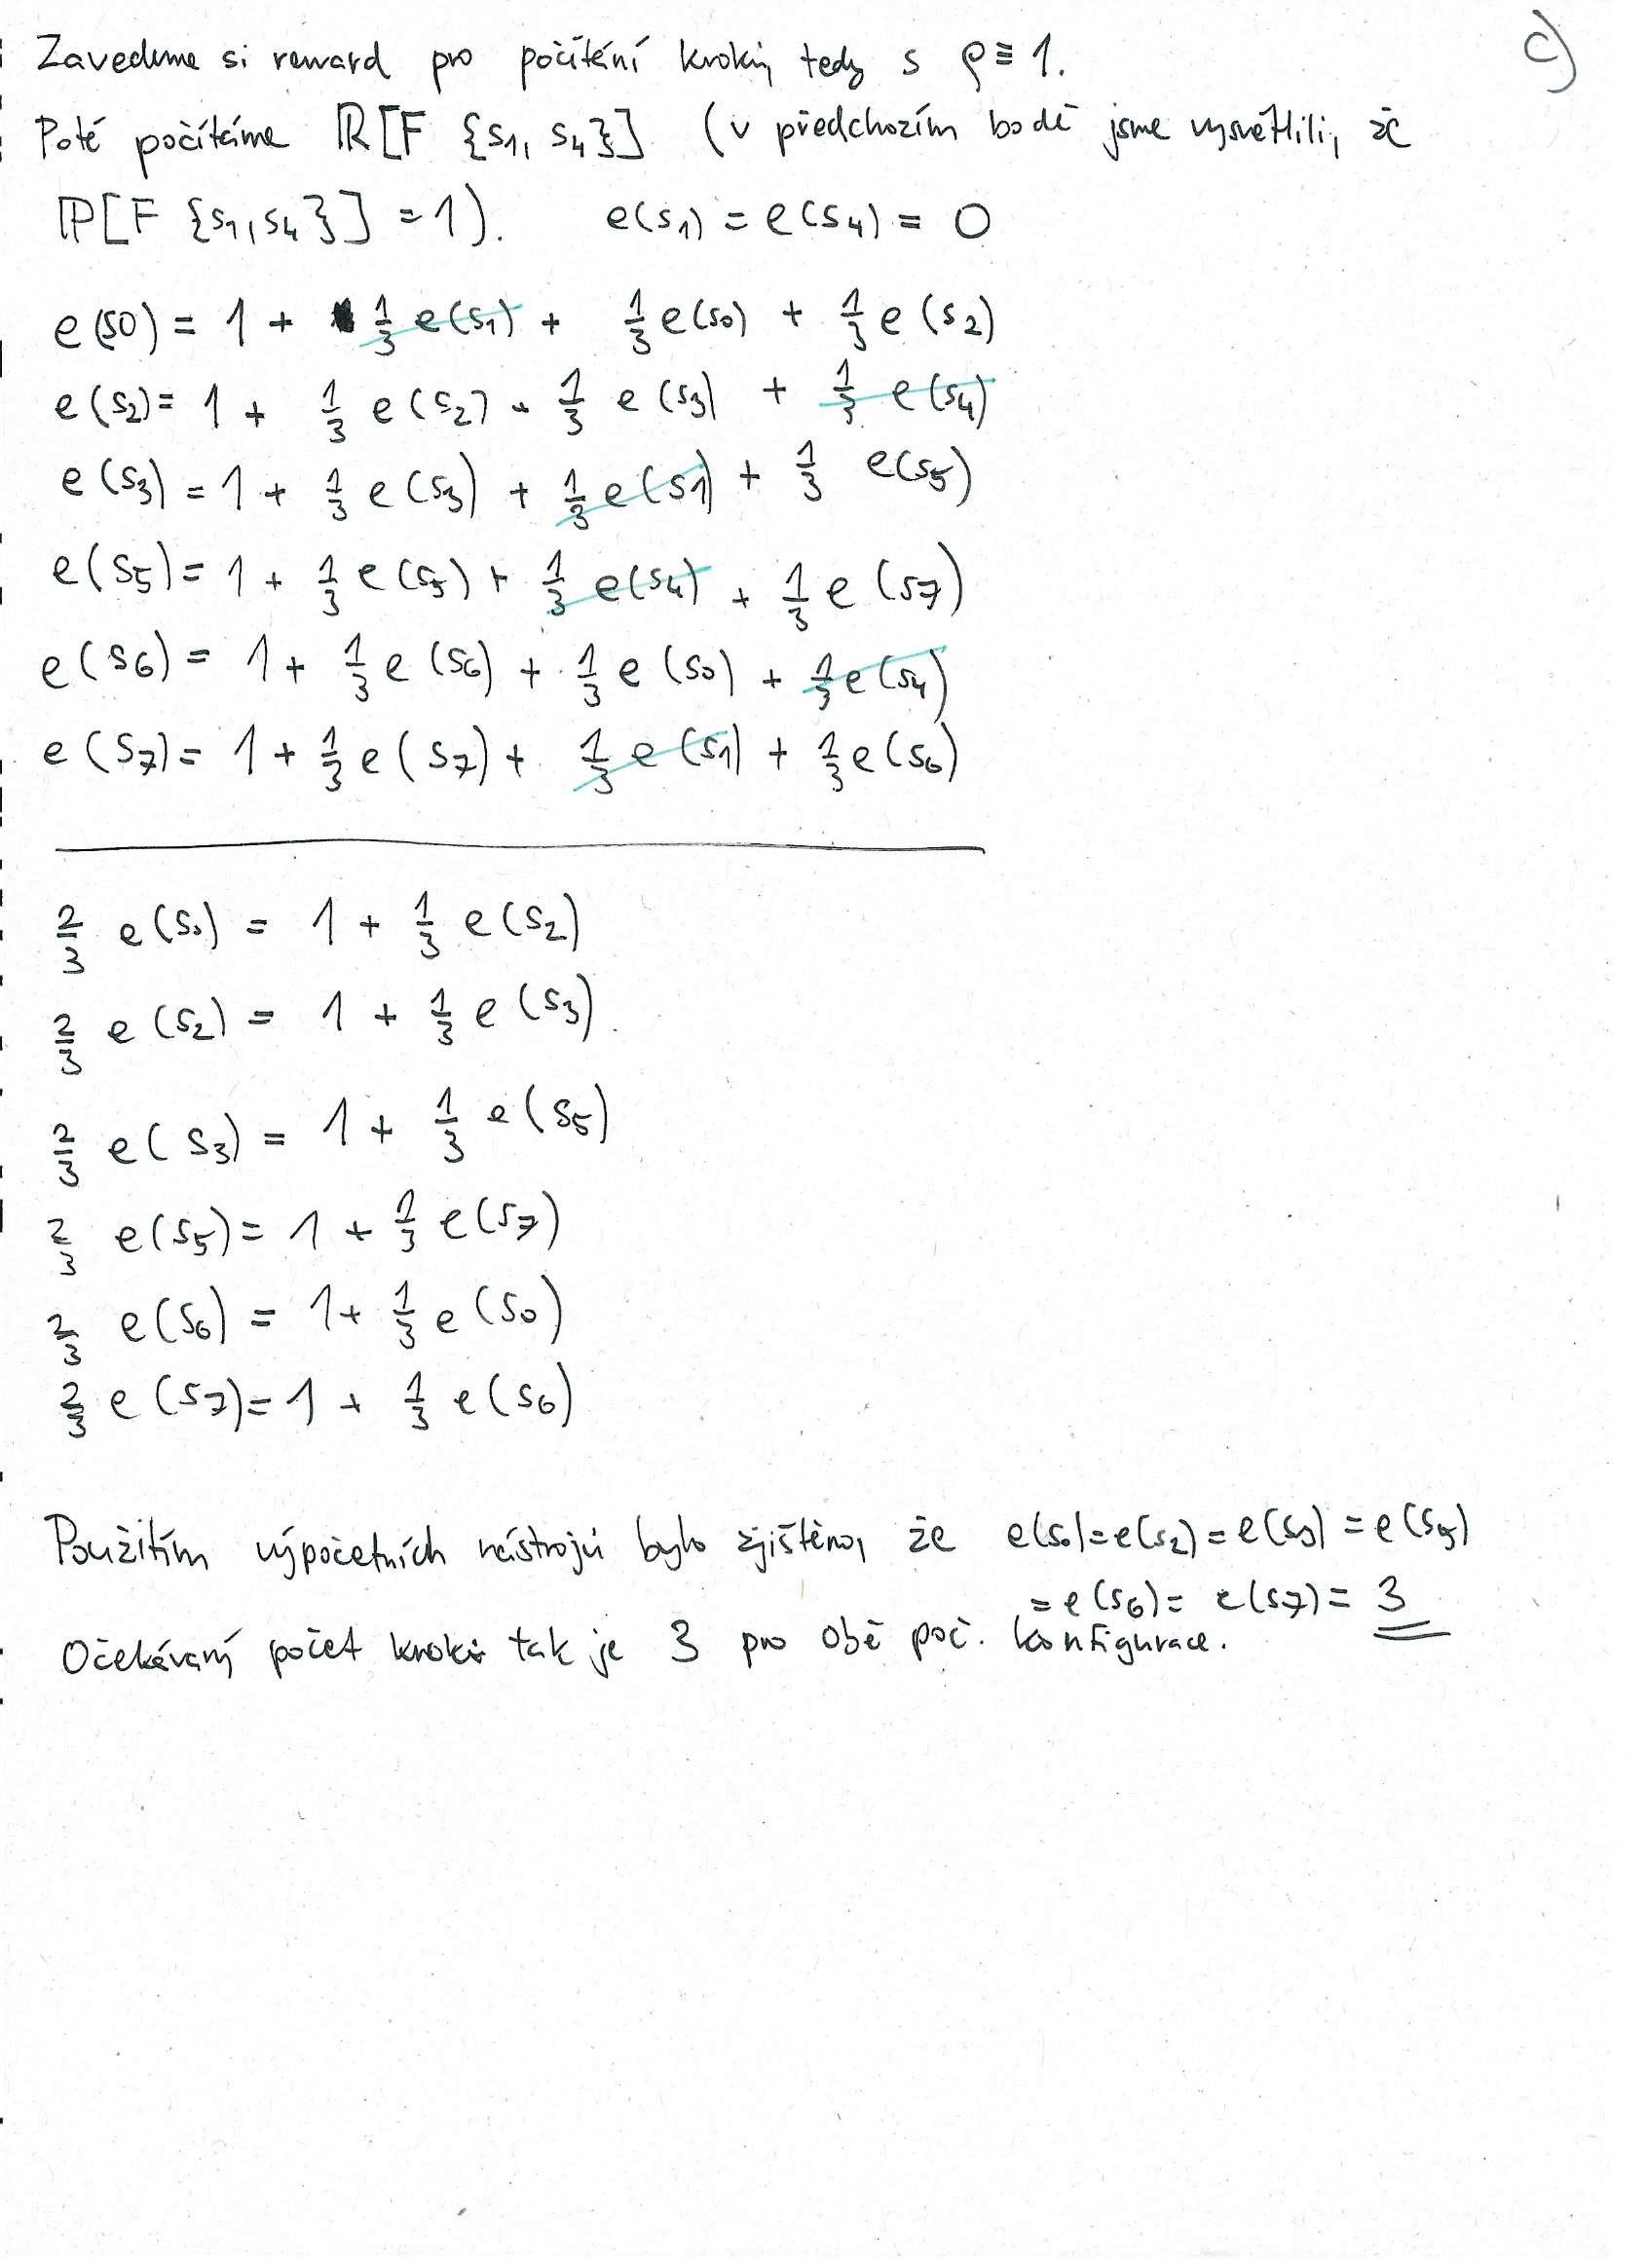 c)
Zavedeme si reward pro počítání kroků, tedy s ρ ≡ 1.
Poté počítáme ℝ[F {s₁, s₄}] (v předchozím bodě jsme vysvětlili, že
ℙ[F {s₁, s₄}] = 1). e(s₁) = e(s₄) = 0
e(s0) = 1 + 1/3 e(s₁) + 1/3 e(s₀) + 1/3 e(s₂)
e(s₂) = 1 + 1/3 e(s₂) + 1/3 e(s₃) + 1/3 e(s₄)
e(s₃) = 1 + 1/3 e(s₃) + 1/3 e(s1) + 1/3 e(s₅)
e(s₅) = 1 + 1/3 e(s₅) + 1/3 e(s₄) + 1/3 e(s7)
e(s₆) = 1 + 1/3 e(s₆) + 1/3 e(s₀) + 1/3 e(s₄)
e(s₇) = 1 + 1/3 e(s₇) + 1/3 e(s₁) + 1/3 e(s₆)
2/3 e(s₀) = 1 + 1/3 e(s₂)
2/3 e(s₂) = 1 + 1/3 e(s₃)
2/3 e(s₃) = 1 + 1/3 e(s₅)
2/3 e(s₅) = 1 + 1/3 e(s₇)
2/3 e(s₆) = 1 + 1/3 e(s₀)
2/3 e(s₇) = 1 + 1/3 e(s₆)
Použitím výpočetních nástrojů bylo zjištěno, že e(s₀) = e(s₂) = e(s₃) = e(s₅)
= e(s₆) = e(s₇) = 3
Očekávaný počet kroků tak je 3 pro obě poč. konfigurace.